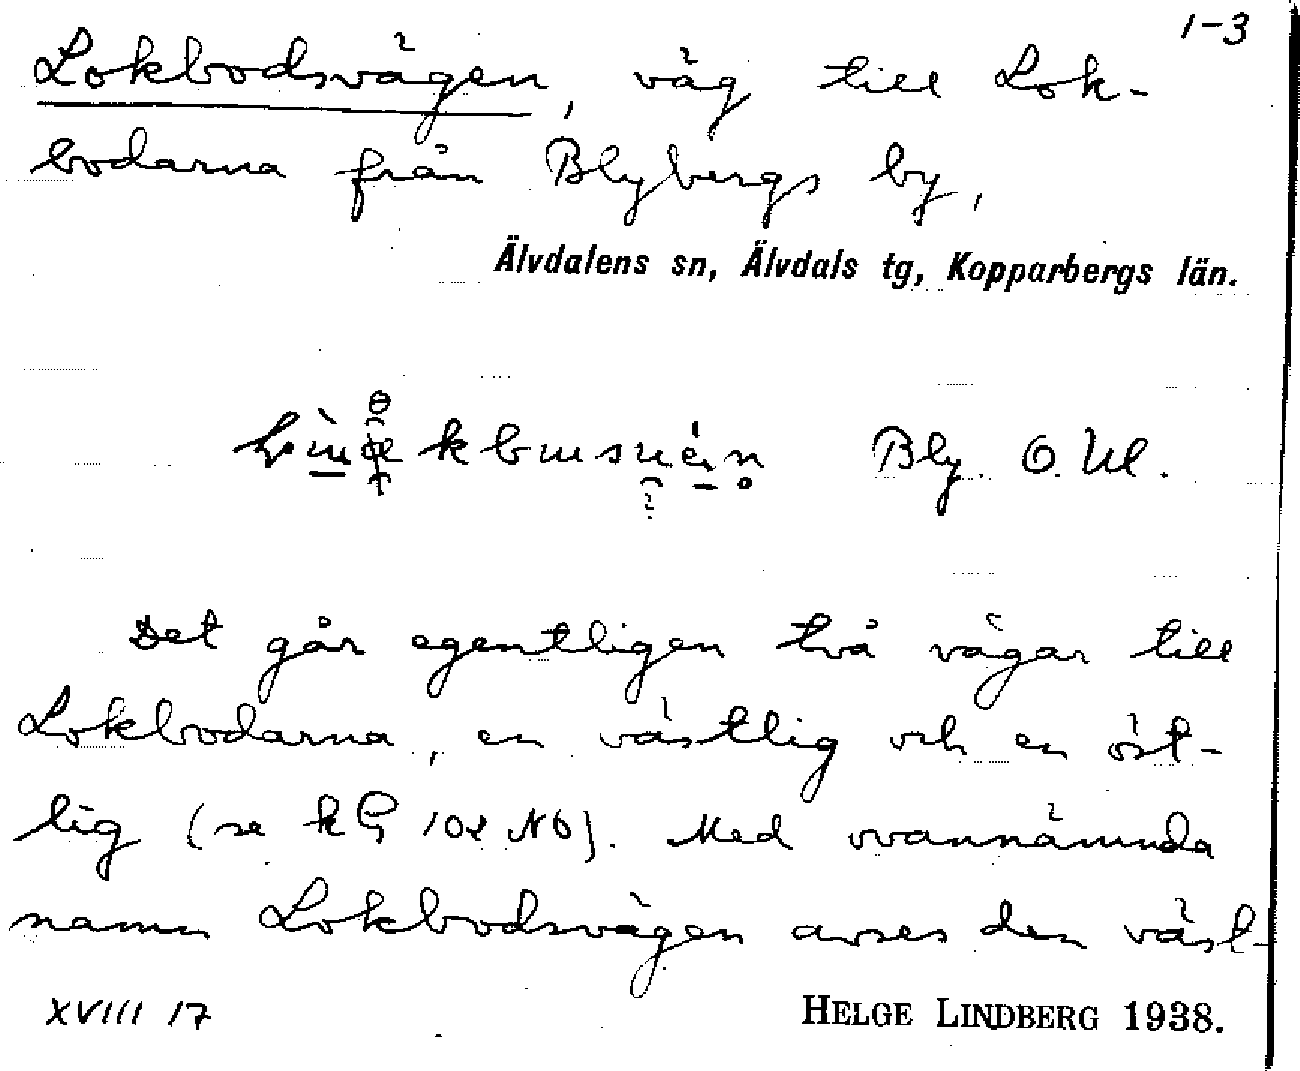 1-3
Lokbodsvägen, väg till Lok-
bodarna från Blybergs by,
Älvdalens sn, Älvdals tg, Kopparbergs län.
Bly. O. Ul.
Det går egentligen två vägar till
Lokbodarna, en västlig och en öst-
lig (se kG 102 NO). Med ovannämnda
namn Lokbodsvägen avses den väst-
XVIII 17
HELGE LINDBERG 1938.